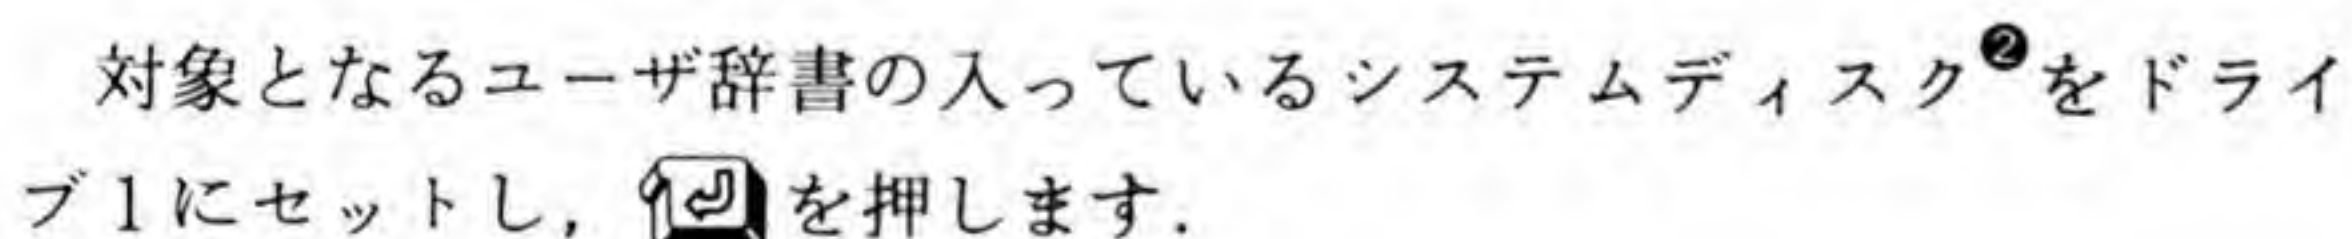 対象となるユーザ辞書の入っているシステムディスク❷をドライ
ブ1にセットし，⏎を押します．